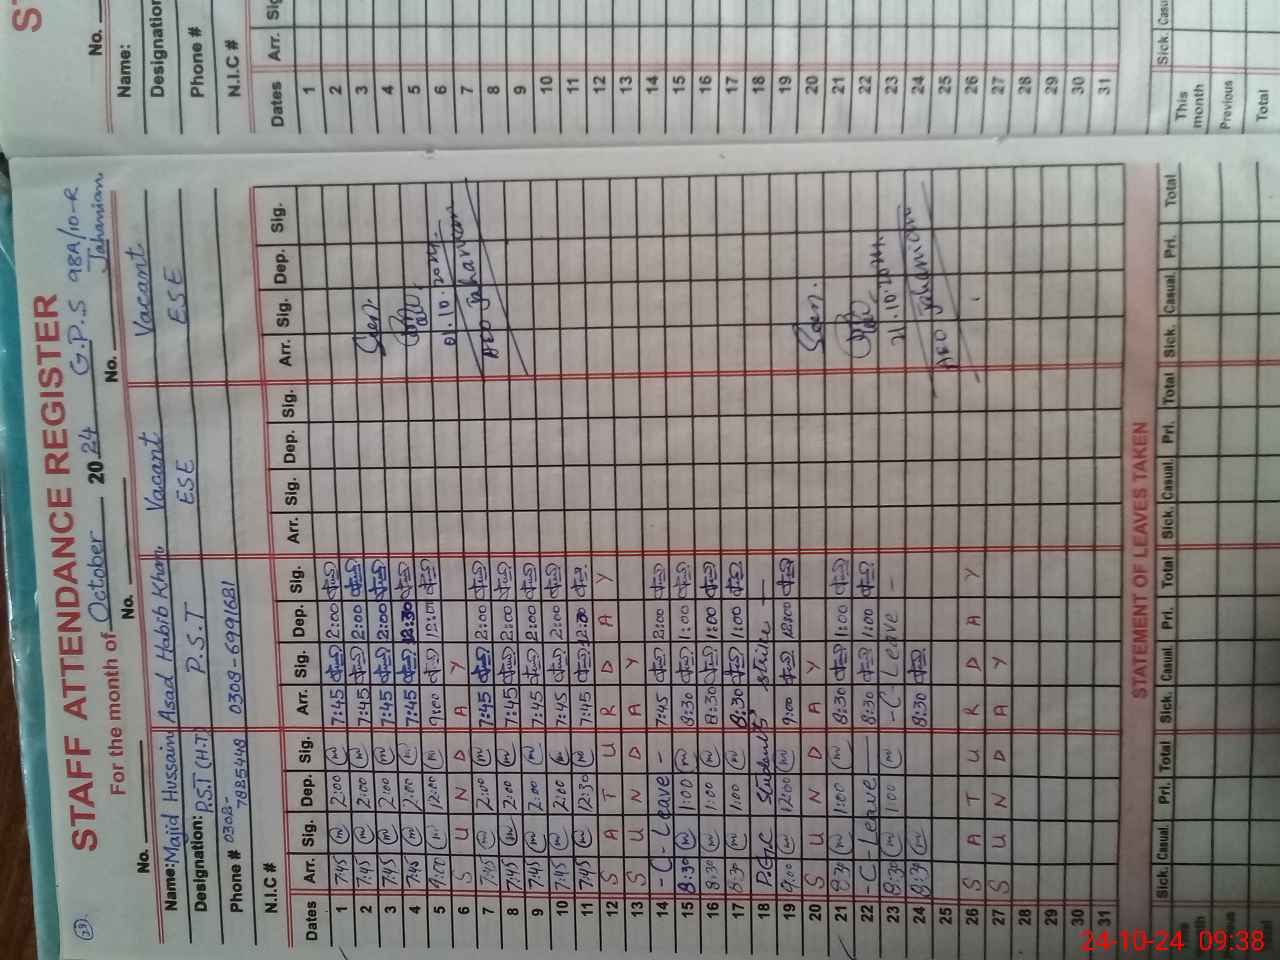 STAFF ATTENDANCE REGISTER
For the month of October 2024 G.P.S 98A/10-R
Jahanian
No. No. No.
Name: Majid Hussain Asad Habib Khan Vacant Vacant
Designation: P.S.T (H.T) P.S.T ESE ESE
Phone # 0308-7085448 0308-6991681
N.I.C #
Dates Arr. Sig. Dep. Sig. Arr. Sig. Dep. Sig. Arr. Sig. Dep. Sig. Arr. Sig. Dep. Sig.
1 7:45 2:00 7:45 2:00
2 7:45 2:00 7:45 2:00
3 7:45 2:00 7:45 2:00 Seen.
4 7:45 2:00 7:45 12:30
5 9:00 12:00 9:00 12:00 .10.2024
6 S U N D A Y AEO Jahanian
7 7:45 2:00 7:45 2:00
8 7:45 2:00 7:45 2:00
9 7:45 2:00 7:45 2:00
10 7:45 2:00 7:45 2:00
11 7:45 12:30 7:45 12:30
12 S A T U R D A Y
13 S U N D A Y
14 - C - Leave - 7:45 2:00
15 8:30 1:00 8:30 1:00
16 8:30 1:00 8:30 1:00
17 8:30 1:00 8:30 1:00
18 P.G.C Students strike
19 9:00 12:00 9:00 12:00
20 S U N D A Y Seen.
21 8:30 1:00 8:30 1:00
22 - C - Leave 8:30 1:00
23 8:30 1:00 - C - Leave - 21.10.2024
24 8:30 8:30 AEO Jahanian
25
26 S A T U R D A Y
27 S U N D A Y
28
29
30
31
STATEMENT OF LEAVES TAKEN
Sick. Casual. Pri. Total Sick. Casual. Pri. Total Sick. Casual. Pri. Total Sick. Casual. Pri. Total
No.
Name:
Designation
Phone #
N.I.C #
Dates Arr. Sig
1
2
3
4
5
6
7
8
9
10
11
12
13
14
15
16
17
18
19
20
21
22
23
24
25
26
27
28
29
30
31
Sick. Casu
This month
Previous
Total
24-10-24 09:38